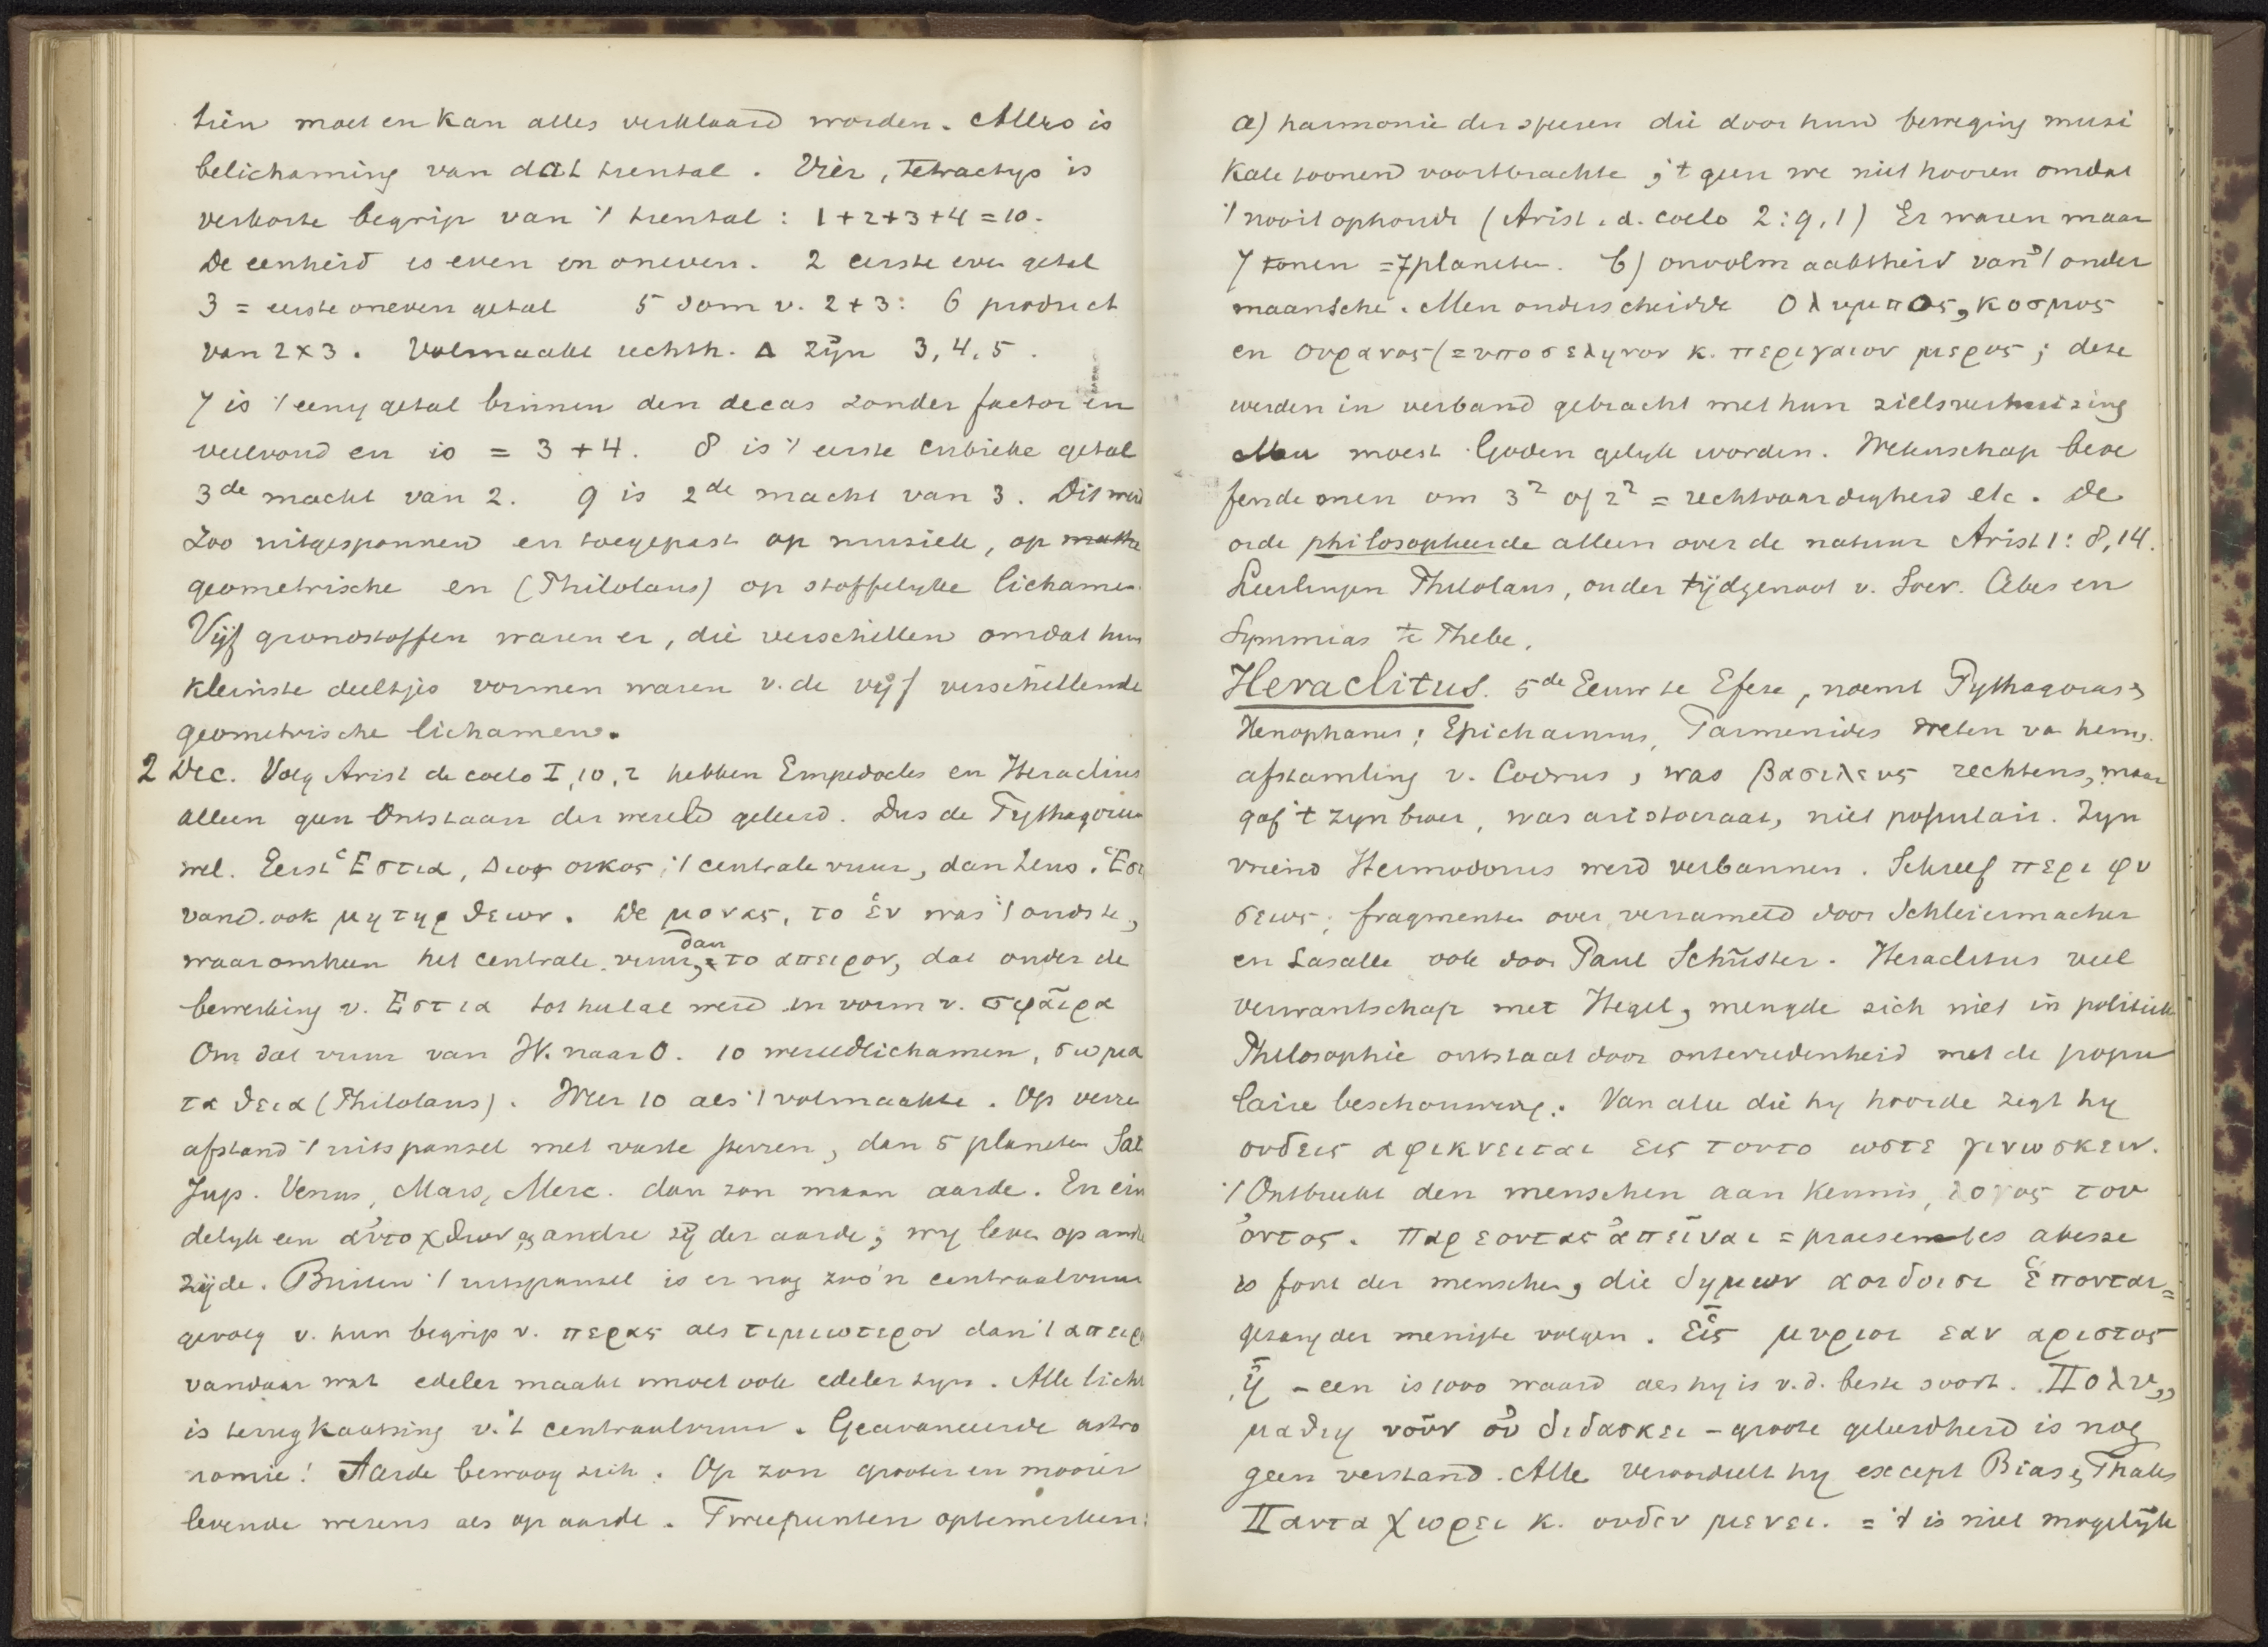 tien moet en kan alles verklaard worden. Alles is
belichaming van dat tiental. Vier, tetractys is
verkorte begrip van 't tiental: 1+2+3+4=10.
De eenheid is even en oneven. 2 eerste even getal
3 = eerste oneven getal 5 som v. 2+3: 6 product
van 2x3. Volmaakte rechth. Δ zijn 3, 4, 5.
7 is 't eenig getal binnen den decas zonder factor en
veelvoud en is = 3+4. 8 is 't eerste cubieke getal
3de macht van 2. 9 is 2de macht van 3. Dit werd
zoo uitgesponnen en toegepast op muziek, op mathe
geometrische en (Philolaus) op stoffelyke lichamen.
Vijf grondstoffen waren er, die verschillen omdat hun
kleinste deeltjes vormen waren v. de vijf verschillende
geometrische lichamen.
2 Dec. Volg Arist de coelo I, 10, 2 hebben Empedocles en Heraclitus
alleen geen Ontstaan der wereld geleerd. Dus de Pythagoreen
wel. Eerst Ἑστια, Διος οικος, 't centrale vuur, dan Zeus. Ἑστ
vand. ook μητηρ θεων. De μονας, το ἑν was 't oudste,
waaromheen het centrale vuur, dan = το απειρον, dat onder de
bewerking v. Εστια tot heelal werd in vorm v. σφαῖρα
Om dat vuur van W. naar O. 10 wereldlichamen, σωμα
τα θεια (Philolaus). Weer 10 als 't volmaakte. Op verre
afstand 't uitspansel met vaste sterren, dan 5 planeten Sat
Jup. Venus, Mars, Merc. dan zon maan aarde. En ein
delyk een ἀντοχθων, andre zij der aarde; wy leven op andre
zijde. Buiten 't uitspansel is er nog zoo'n centraalvuur
gevolg v. hun begrip v. περας als τιμιωτερον dan 't απειρο
vandaar wat edeler maakt moet ook edeler zyn. Alle licht
is terugkaatsing v. 't centraalvuur. Geavanceerde astro
nomie! Aarde bewoog zich. Op zon grooter en mooier
levende wezens als op aarde. Twee punten optemerken:
a) harmonie der speren die door hund beweging muzi
kale toonend voortbrachte; 't geen we niet hooren omdat
't nooit ophoudt (Arist. d. coelo 2:9,1) Er waren maar
7 tonen = 7 planeten. b) onvolmaaktheid van 't onder
maansche. Men onderscheidde Ολυμπος, κοσμος
en ουρανος (= υποσεληνον κ. περιγαιον μερος; deze
werden in verband gebracht met hun zielsverhuizing
Men moest Goden gelyk worden. Wetenschap beoe
fende men om 3² of 2² = rechtvaardigheid etc. De
orde philosopheerde alleen over de natuur Arist 1: 8, 14.
Leerlingen Philolaus, ouder tijdgenoot v. Socr. Cebes en
Symmias te Thebe.
Heraclitus. 5de Eeuw te Efeze, noemt Pythagoras &
Xenophanes; Epicharmus, Parmenides weten va hem,
afstamling v. Codrus, was βασιλευς rechtens, maar
gaf 't zyn broer, was aristocraat, niet populair. Zyn
vriend Hermodorus werd verbannen. Schreef περι φυ
σεως; fragmenten over, verzameld door Schleiermacher
en Lasalle ook door Paul Schuster. Heraclitus veel
verwantschap met Hegel, mengde zich niet in politiek
Philosophie ontstaat door ontevredenheid met de popu
laire beschouwing. Van alle die hy hoorde zegt hy
ουδεις αφικνειται εις τουτο ωστε γινωσκειν.
't Ontbreekt den menschen aan kennis, λογος του
ὀντος. παρεοντας ἀπεῖναι = praesentes abesse
is fout der menschen, die δημων αοιδοισι ἑπονται =
gezang der menigte volgen. Εἷς μυριοι εαν αριστος
ᾖ - een is 1000 waard als hy is v. d. beste soort. Πολυ„
μαθιη νοῦν οὐ διδασκει - groote geleerdheid is nog
geen verstand. Alle veroordeelt hy except Bias & Thales
Παντα χωρει κ. ουδεν μενει. = 't is niet mogelijk